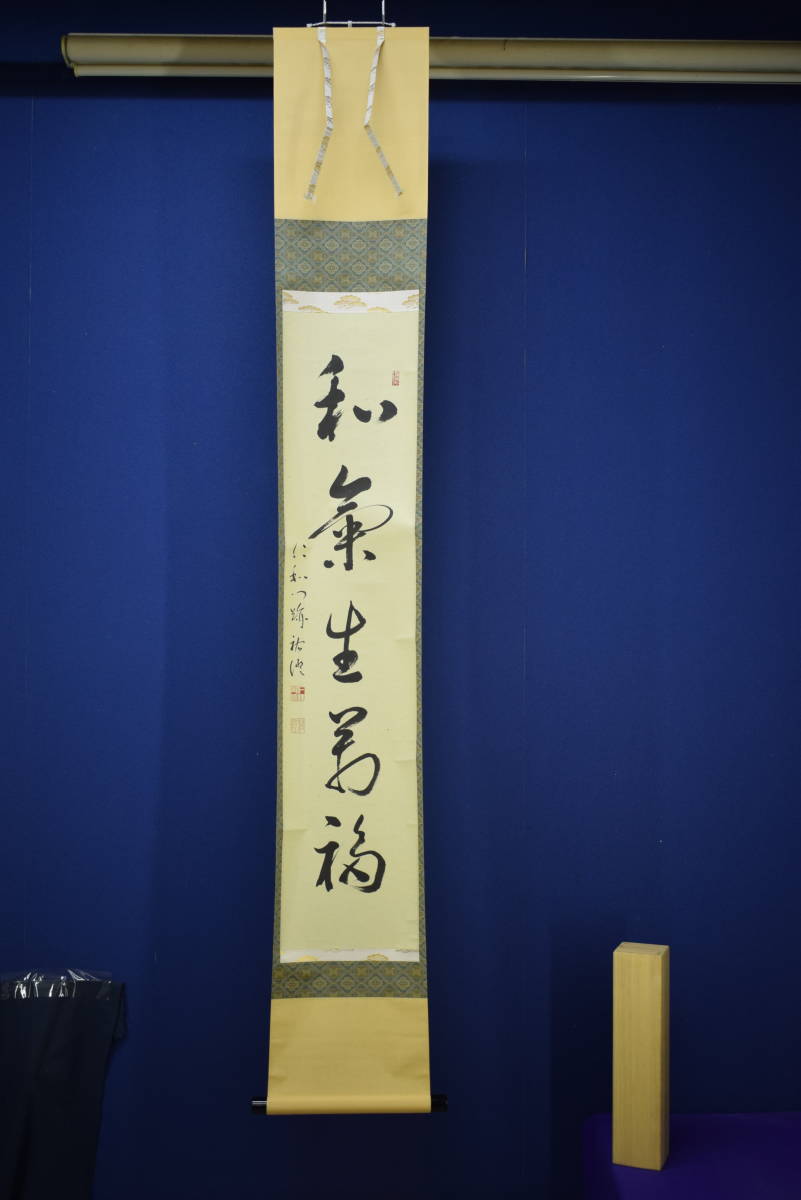 和氣生萬福
仁和門跡